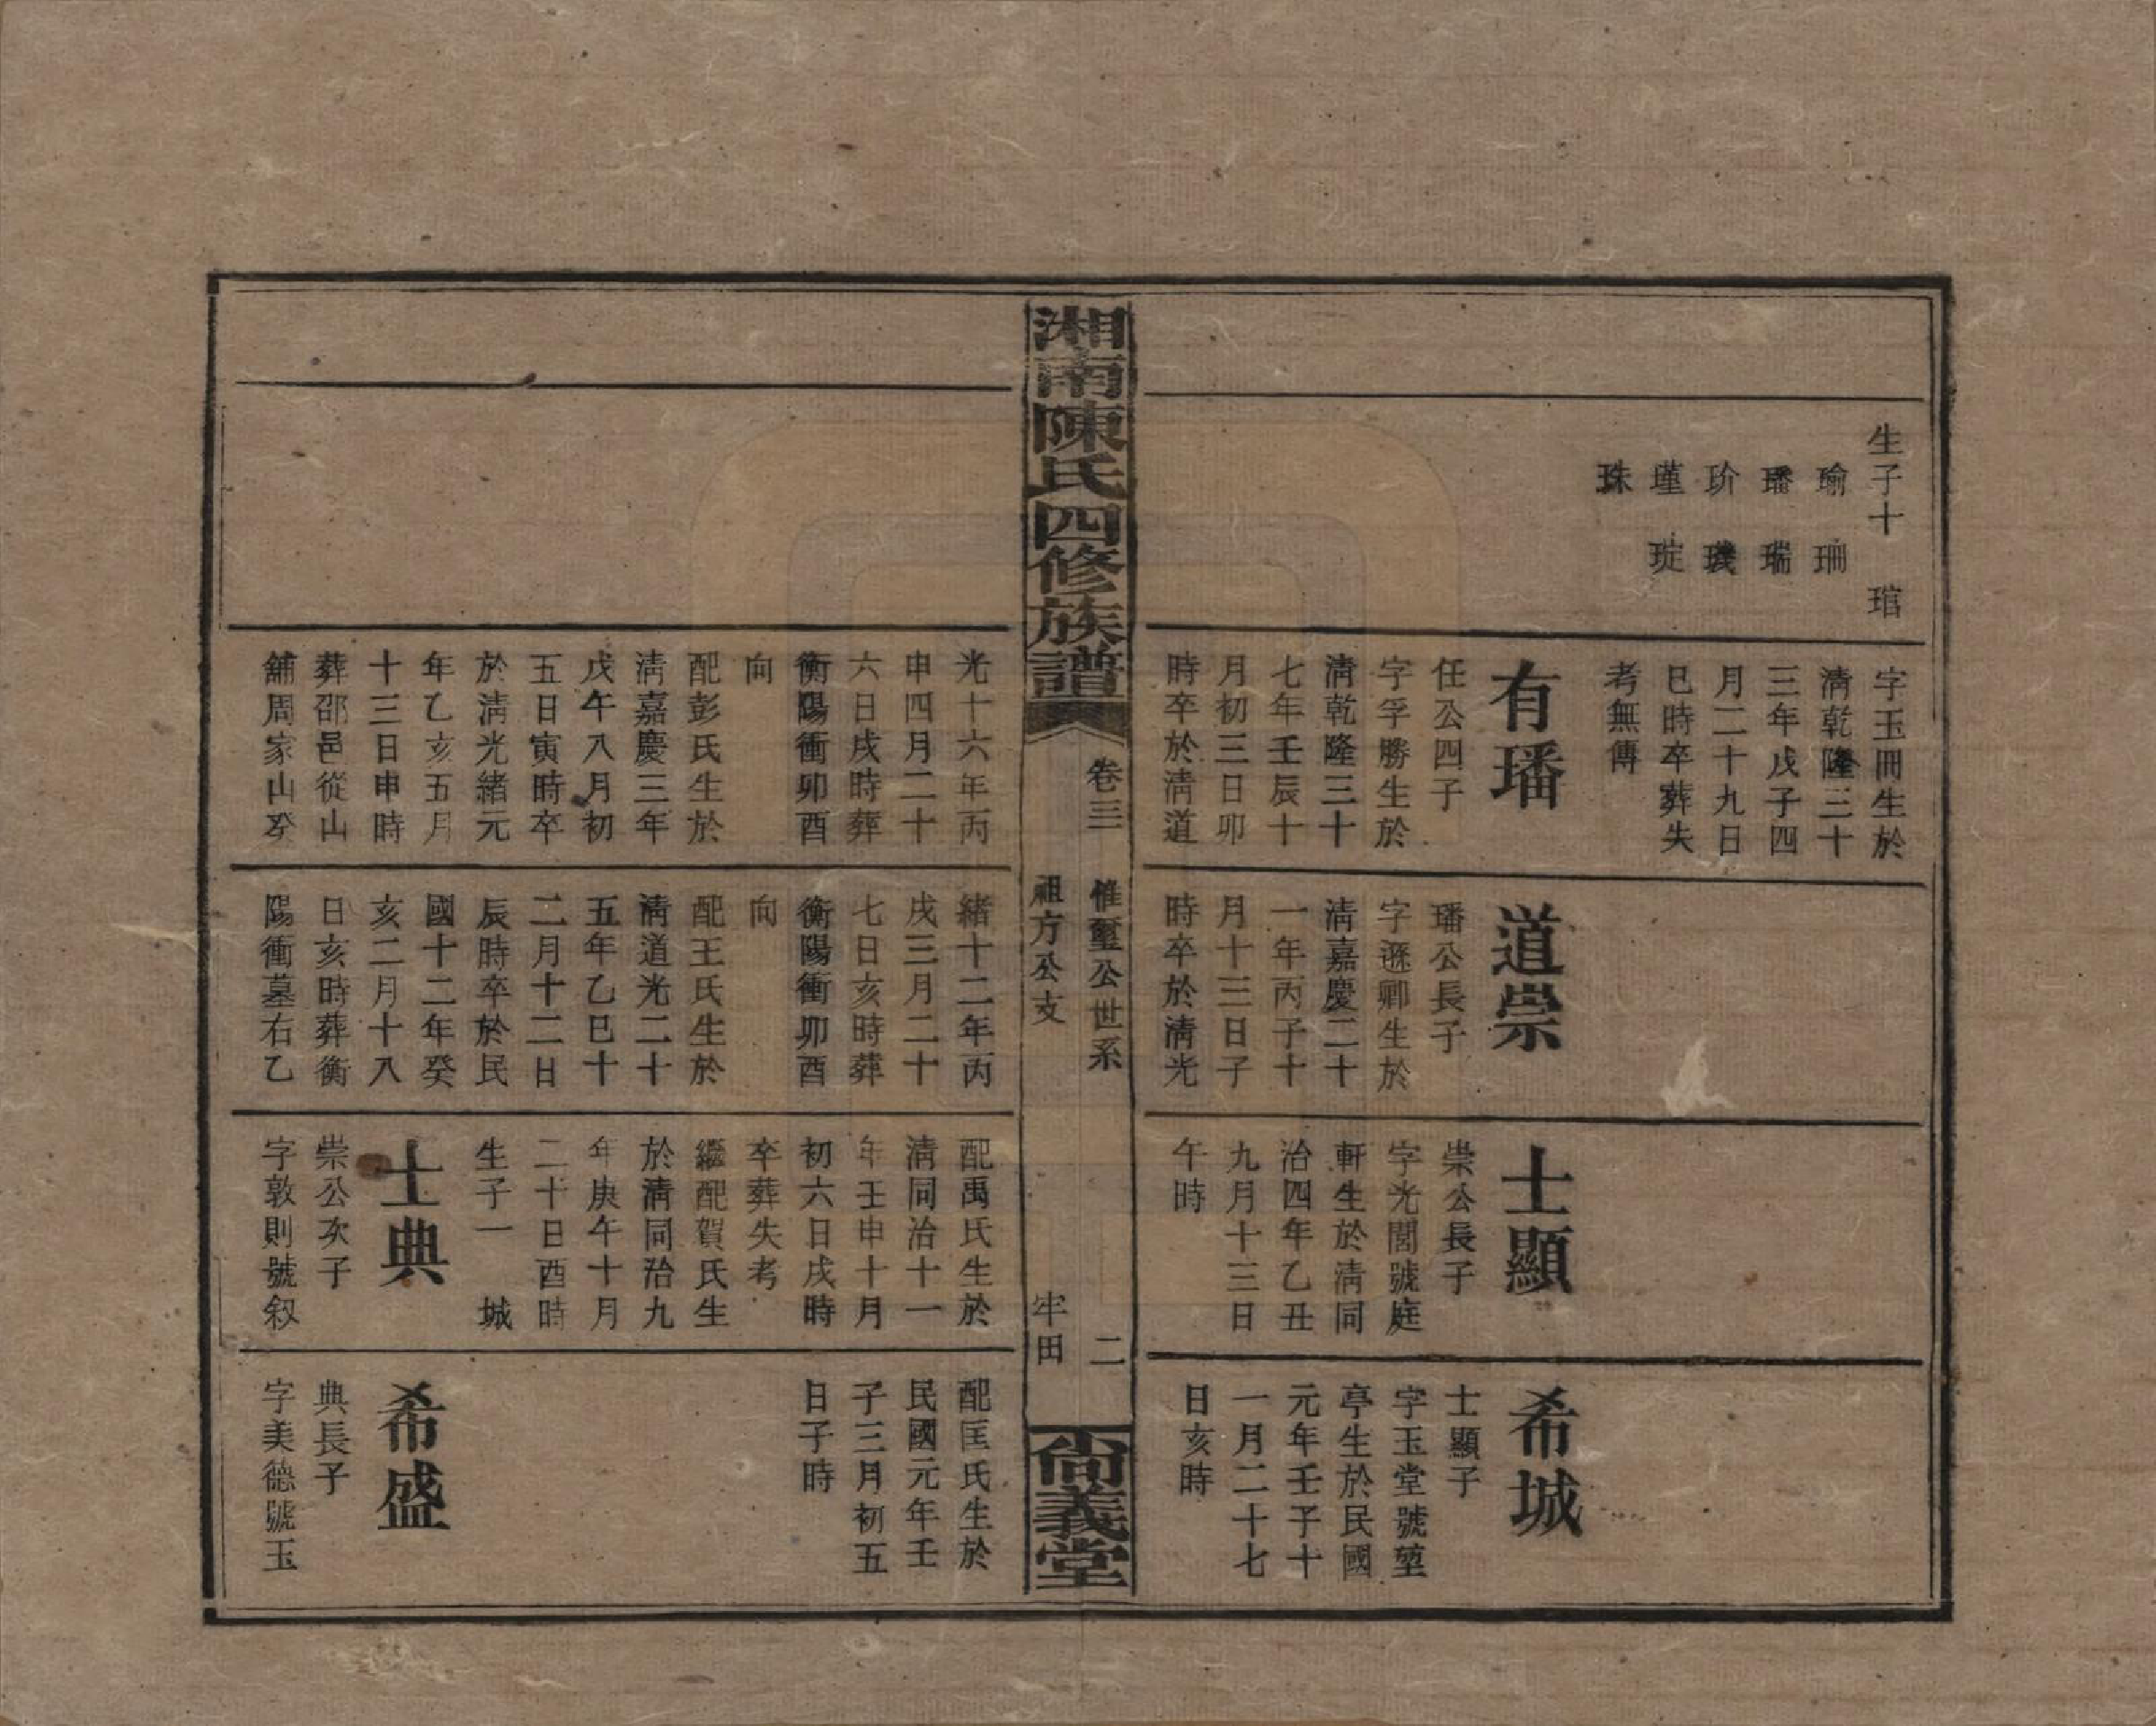 生子十　琯
瑜　珊
璠　瑞
玠　璣
瑾　琔
珠
字玉冊生於
清乾隆三十
三年戊子四
月二十九日
巳時卒葬失
考無傳
有璠
任公四子
字孚勝生於
清乾隆三十
七年壬辰十
月初三日卯
時卒於清道
道崇
璠公長子
字遜卿生於
清嘉慶二十
一年丙子十
月十三日子
時卒於清光
士顯
崇公長子
字光閣號庭
軒生於清同
治四年乙丑
九月十三日
午時
希城
士顯子
字玉堂號堃
亭生於民國
元年壬子十
一月二十七
日亥時
湘南陳氏四修族譜
卷三　惟璽公世系　二
祖方公支　牢田
尚義堂
光十六年丙
申四月二十
六日戌時葬
衡陽衝卯酉
向
配彭氏生於
清嘉慶三年
戊午八月初
五日寅時卒
於清光緒元
年乙亥五月
十三日申時
葬邵邑從山
舖周家山癸
緒十二年丙
戌三月二十
七日亥時葬
衡陽衝卯酉
向
配王氏生於
清道光二十
五年乙巳十
二月十二日
辰時卒於民
國十二年癸
亥二月十八
日亥時葬衡
陽衝墓右乙
配禹氏生於
清同治十一
年壬申十月
初六日戌時
卒葬失考
繼配賀氏生
於清同治九
年庚午十月
二十日酉時
生子一　城
士典
崇公次子
字敦則號叙
配匡氏生於
民國元年壬
子三月初五
日子時
希盛
典長子
字美德號玉